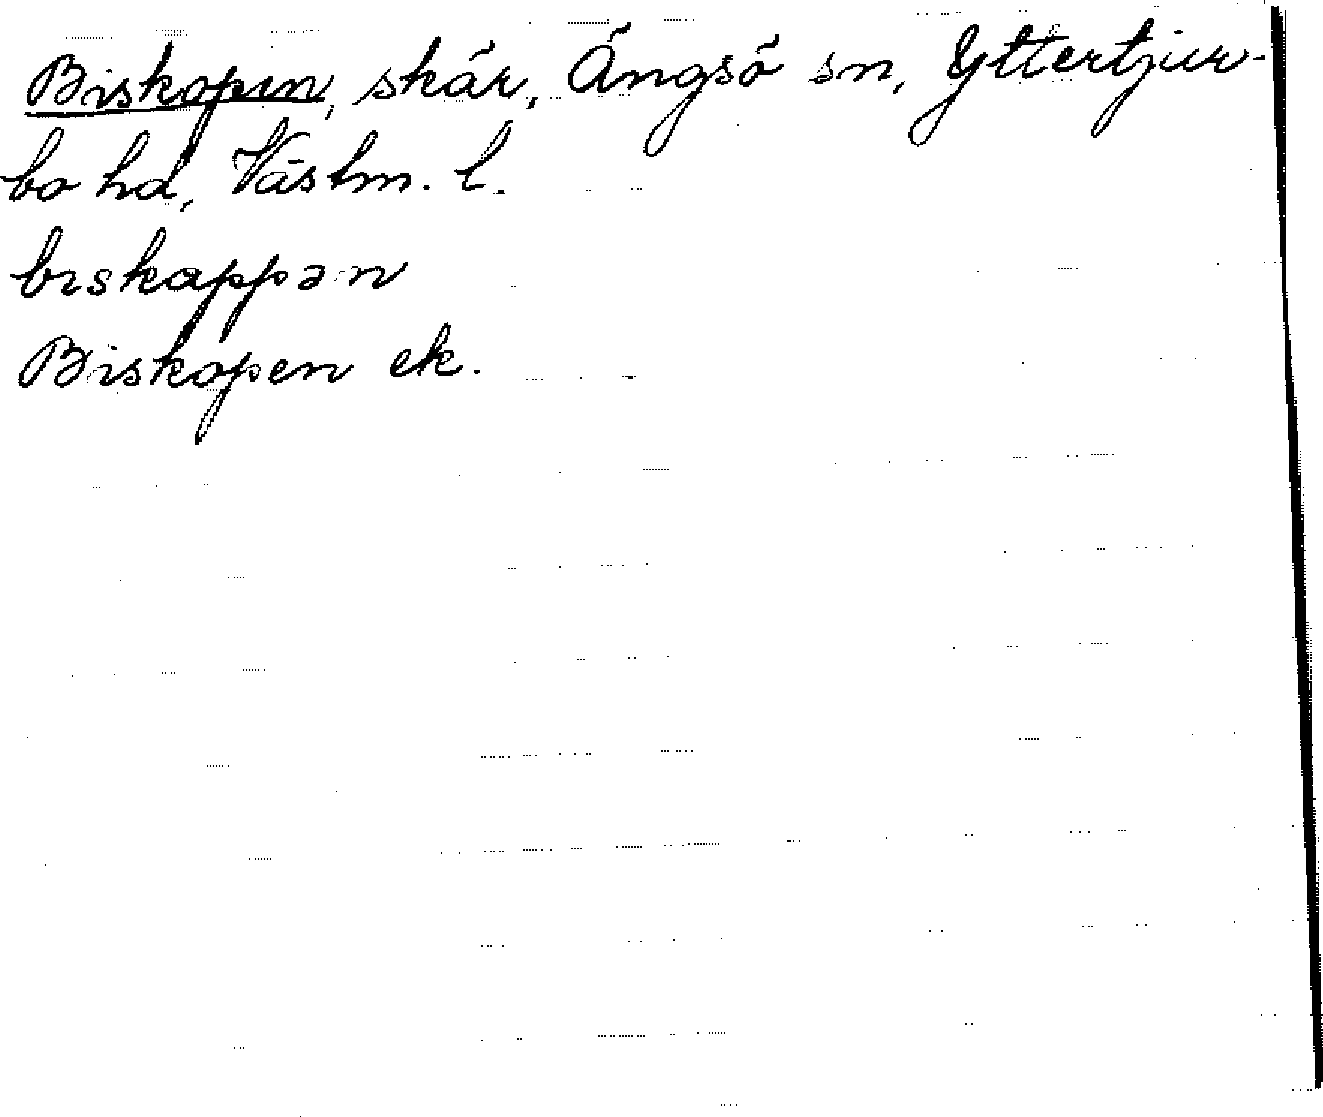 Biskopen, skär, Ängsö sn, Yttertjur-
bo hd, Västm. l.
bıskappən
Biskopen ek.